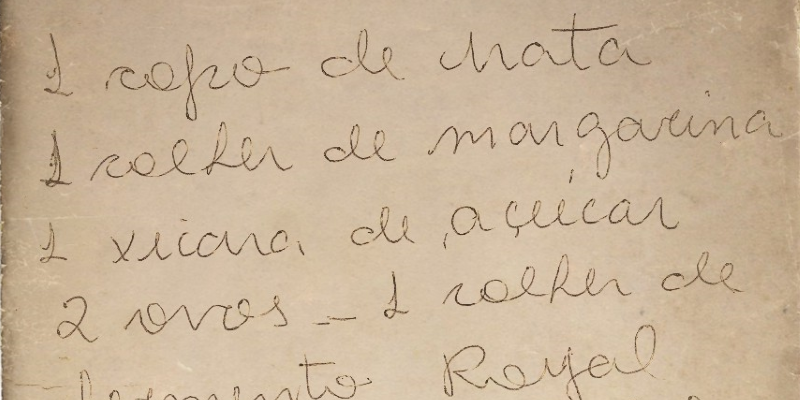 1 copo de nata
1 colher de margarina
1 xícara de açúcar
2 ovos - 1 colher de
fermento Royal